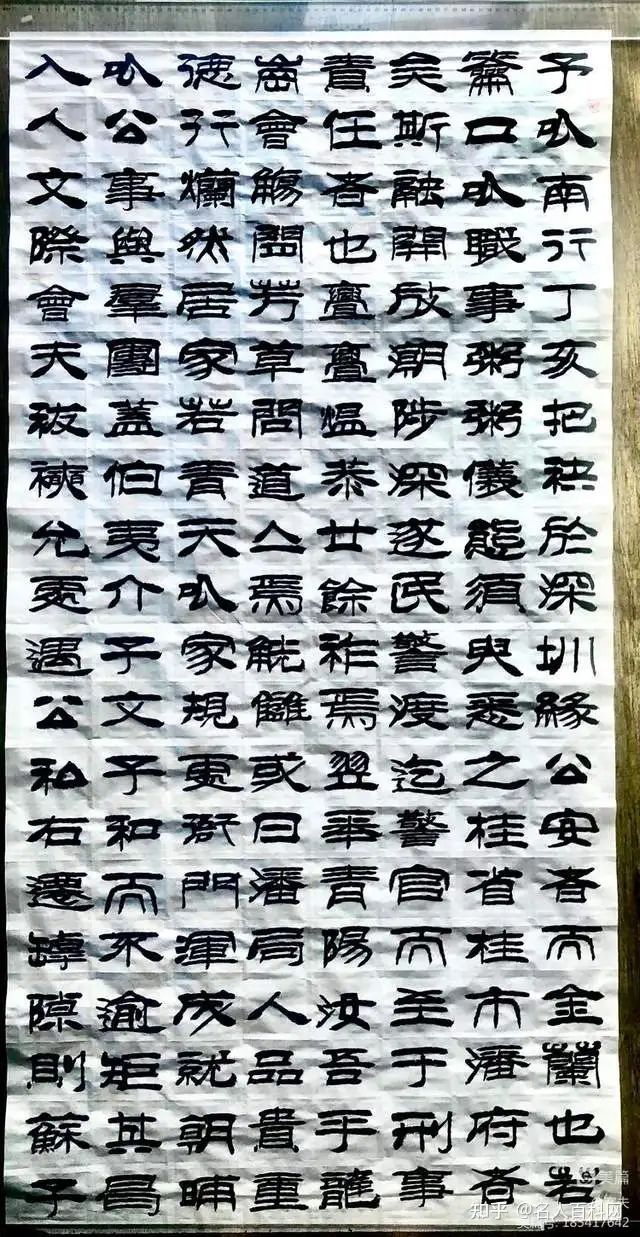 予以南行丁亥把袂於深圳緣公安者而金蘭也若
口以職事粥粥儀態須臾悉之桂省桂市潘府者
矣斯融開放潮陟深遂民警渡迄警官而至于刑事
責任者也亹亹熅恭廿餘祚焉翌青陽汝吾手
崗會觴閭芳草問道亼焉觥讎或曰潘局人品貴重
德行爛然居家若青天以家規更衙門渾成就朝晡
以公事與羣團蓋伯夷介子文子和而不逾矩其昌
入人文際會夫祓允更遇公私右遷罅隙則蘇子
美篇
知乎 @名人百科网
美篇号: 185417642